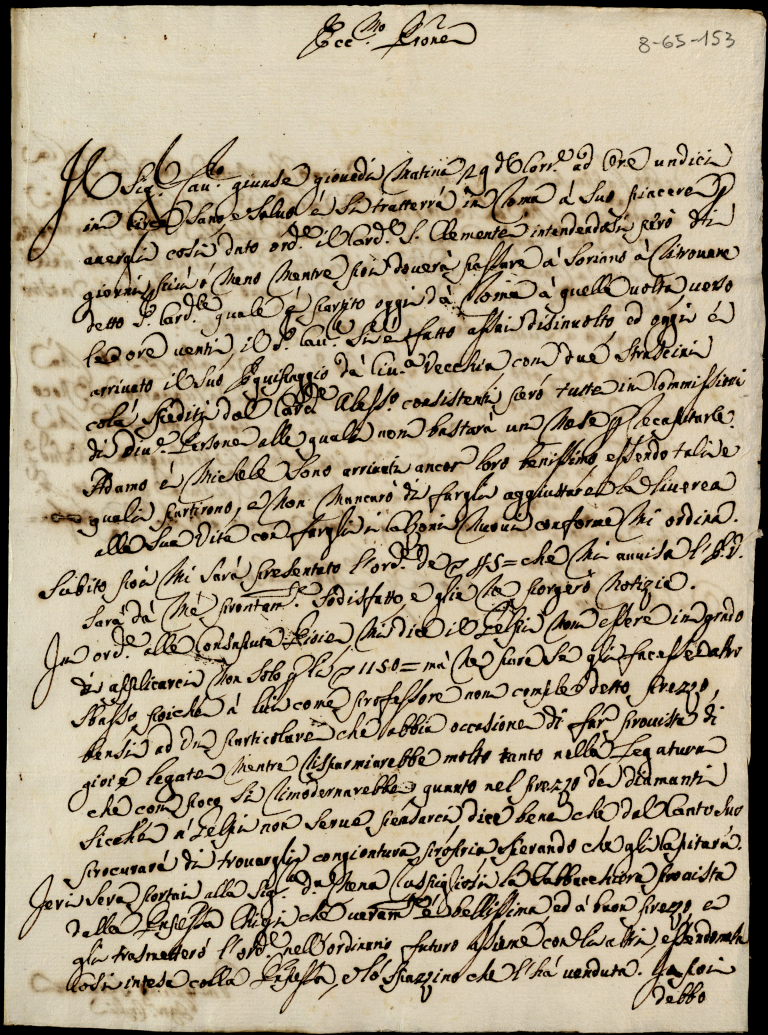 Ecc.mo Prone
8-65-153
Il Sig.r Cau.re giunse giovedì Matina 29 del Corr.e ad Ore undici
in circa Sano e Saluo e si tratterrà in Roma à suo piacere p
auergli così dato ord.e il Card.e S. Clemente intendendosi però di
giorni più ò meno mentre poi douerà passare à Soriano à Ritrouare
detto S.r Card.le quale è partito oggi da Roma à quella volta verso
le ore venti, il d.o Cau.re si è fatto assai disinuolto ed oggi è
arriuato il suo Equipaggio da Ciu.a Vecchia con due Strascini
colà spediti dal Card.le Aless.o consistenti però tutte in Commissioni
di diu.e Persone alle quali non bastarà un Mese p recapitarle.
Adamo e Michele sono arriuati ancor loro benissimo essendo tali e
quali partirono, e non mancarò di fargli aggiustare la liuerea
alla sua vita con fargli i Calzoni nuoui conforme mi ordina.
Subito poi mi sarà presentato l'ord.e de 45= che mi auuisa l'E.V.
sarà da me prontam.te sodisfatto e glie ne porgerò notizie.
In ord.e alle Consapute Gioie mi dice il Telpi non essere in grado
di applicarci non solo p li 1150= mà ne pure se gli facesse altro
sbasso poiche à lui come professore non comple detto prezzo,
bensì ad un particolare che abbia occasione di far prouista di
gioie legate mentre risparmiarebbe molto tanto nella Legatura
che con poco si rimodernarebbe quanto nel prezzo de diamanti
sicche à Telpi non serue pensarci dice bene che dal Canto suo
procurarà di trouargli congiontura propria sperando che gli capitarà.
Jeri sera portai alla Sig.ra D.a Rospigliosi la Tabbacchiera prouista
dalla Pnpessa Chigi che ueram.te è bellissima ed à buon prezzo e
gli trasmetterò l'ord.e nell'ordinario futuro assieme con li altri, essendone
così intesa colla Pnpessa, e lo spazzino che l'hà venduta. In poi
debbo